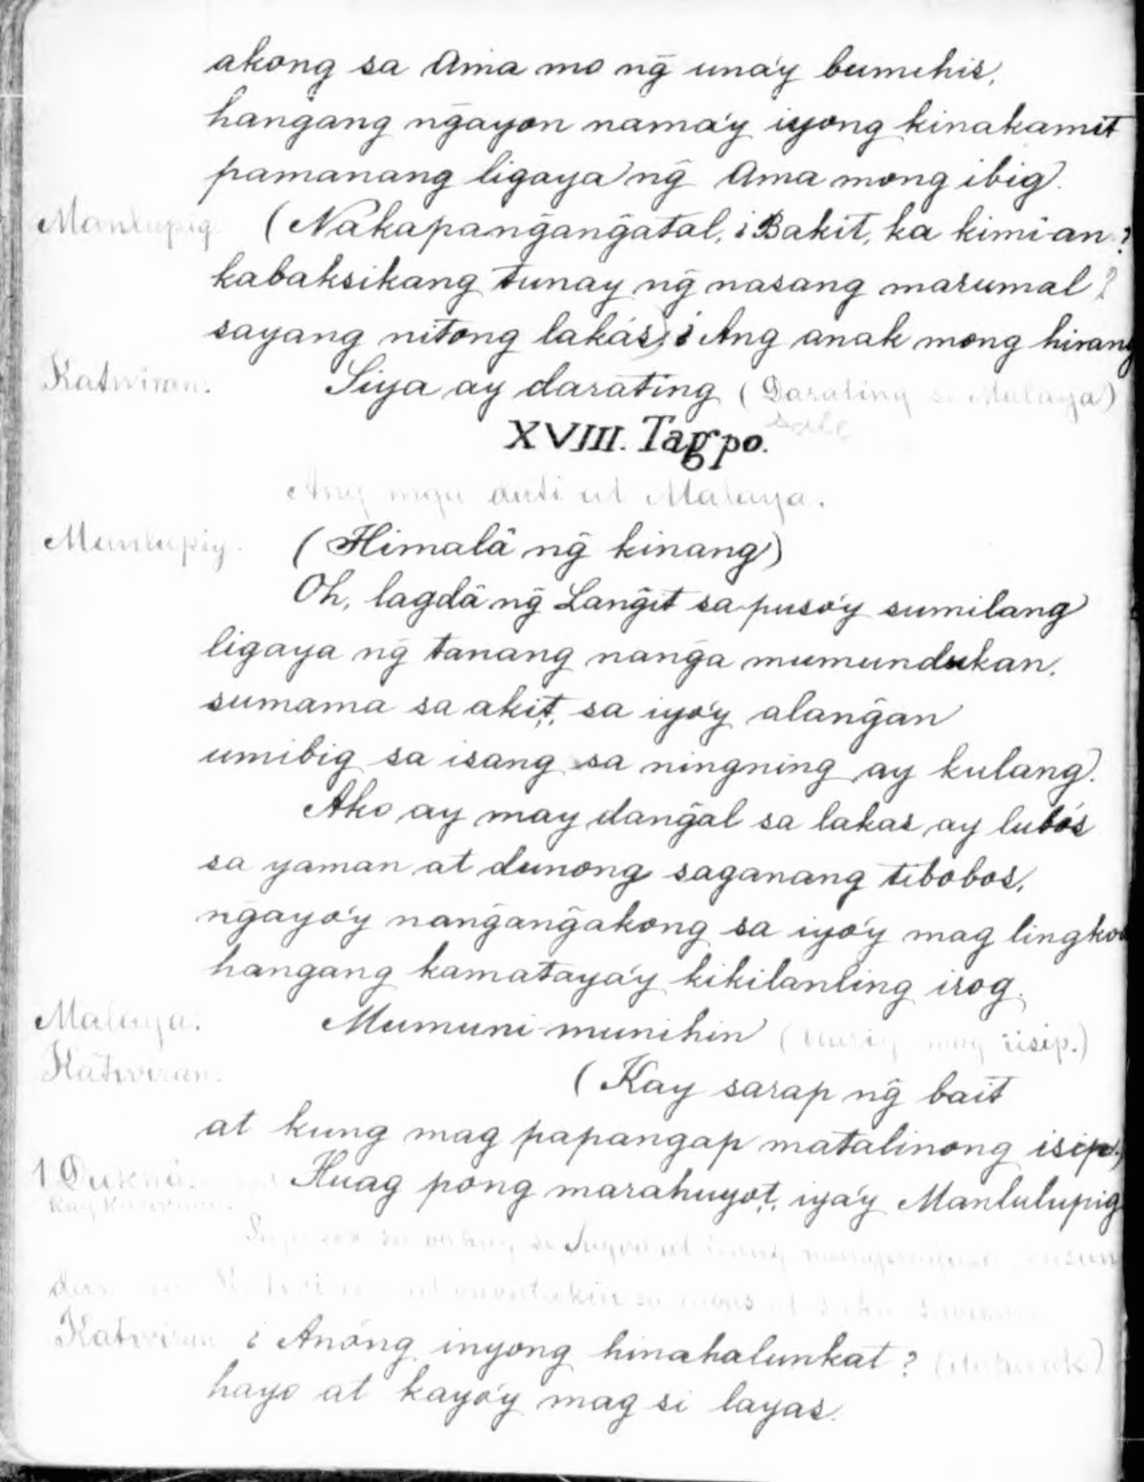 akong sa Ama mo ng̃ una'y bumihis,
hang̃ang ng̃ayon nama'y iyong kinakamit
pamanang ligaya ng̃ Ama mong ibig.
Manlupig (Nakapang̃ang̃atal, ¿Bakit, ka kimi-an?
kabaksikang tunay ng̃ nasang marumal?
sayang nitong lakás) ¿Ang anak mong hirang
Katwiran. Siya ay darating (Darating si Malaya)
XVIII. Tagpo.
Ang mga dati at Malaya.
Manlupig. (Himalâ ng̃ kinang)
Oh, lagdâ ng̃ Lang̃it sa puso'y sumilang
ligaya ng̃ tanang nang̃a mumundukan,
sumama sa akit, sa iyo'y alang̃an
umibig sa isang sa ningning ay kulang.
Ako ay may dang̃al sa lakas ay lubós
sa yaman at dunong saganang tibobos,
ng̃ayo'y nang̃ang̃akong sa iyo'y mag lingkod
hangang kamataya'y kikilanling irog.
Malaya. Mumuni-munihin ( mag iisip.)
Katwiran. (Kay sarap ng̃ bait
at kung mag papangap matalinong isip.)
1 Dukhâ. Huag pong marahuyot, iya'y Manlulupig
Kay Katwiran.
Katwiran ¿Anóng inyong hinahalunkat?
hayo at kayo'y mag si layas.